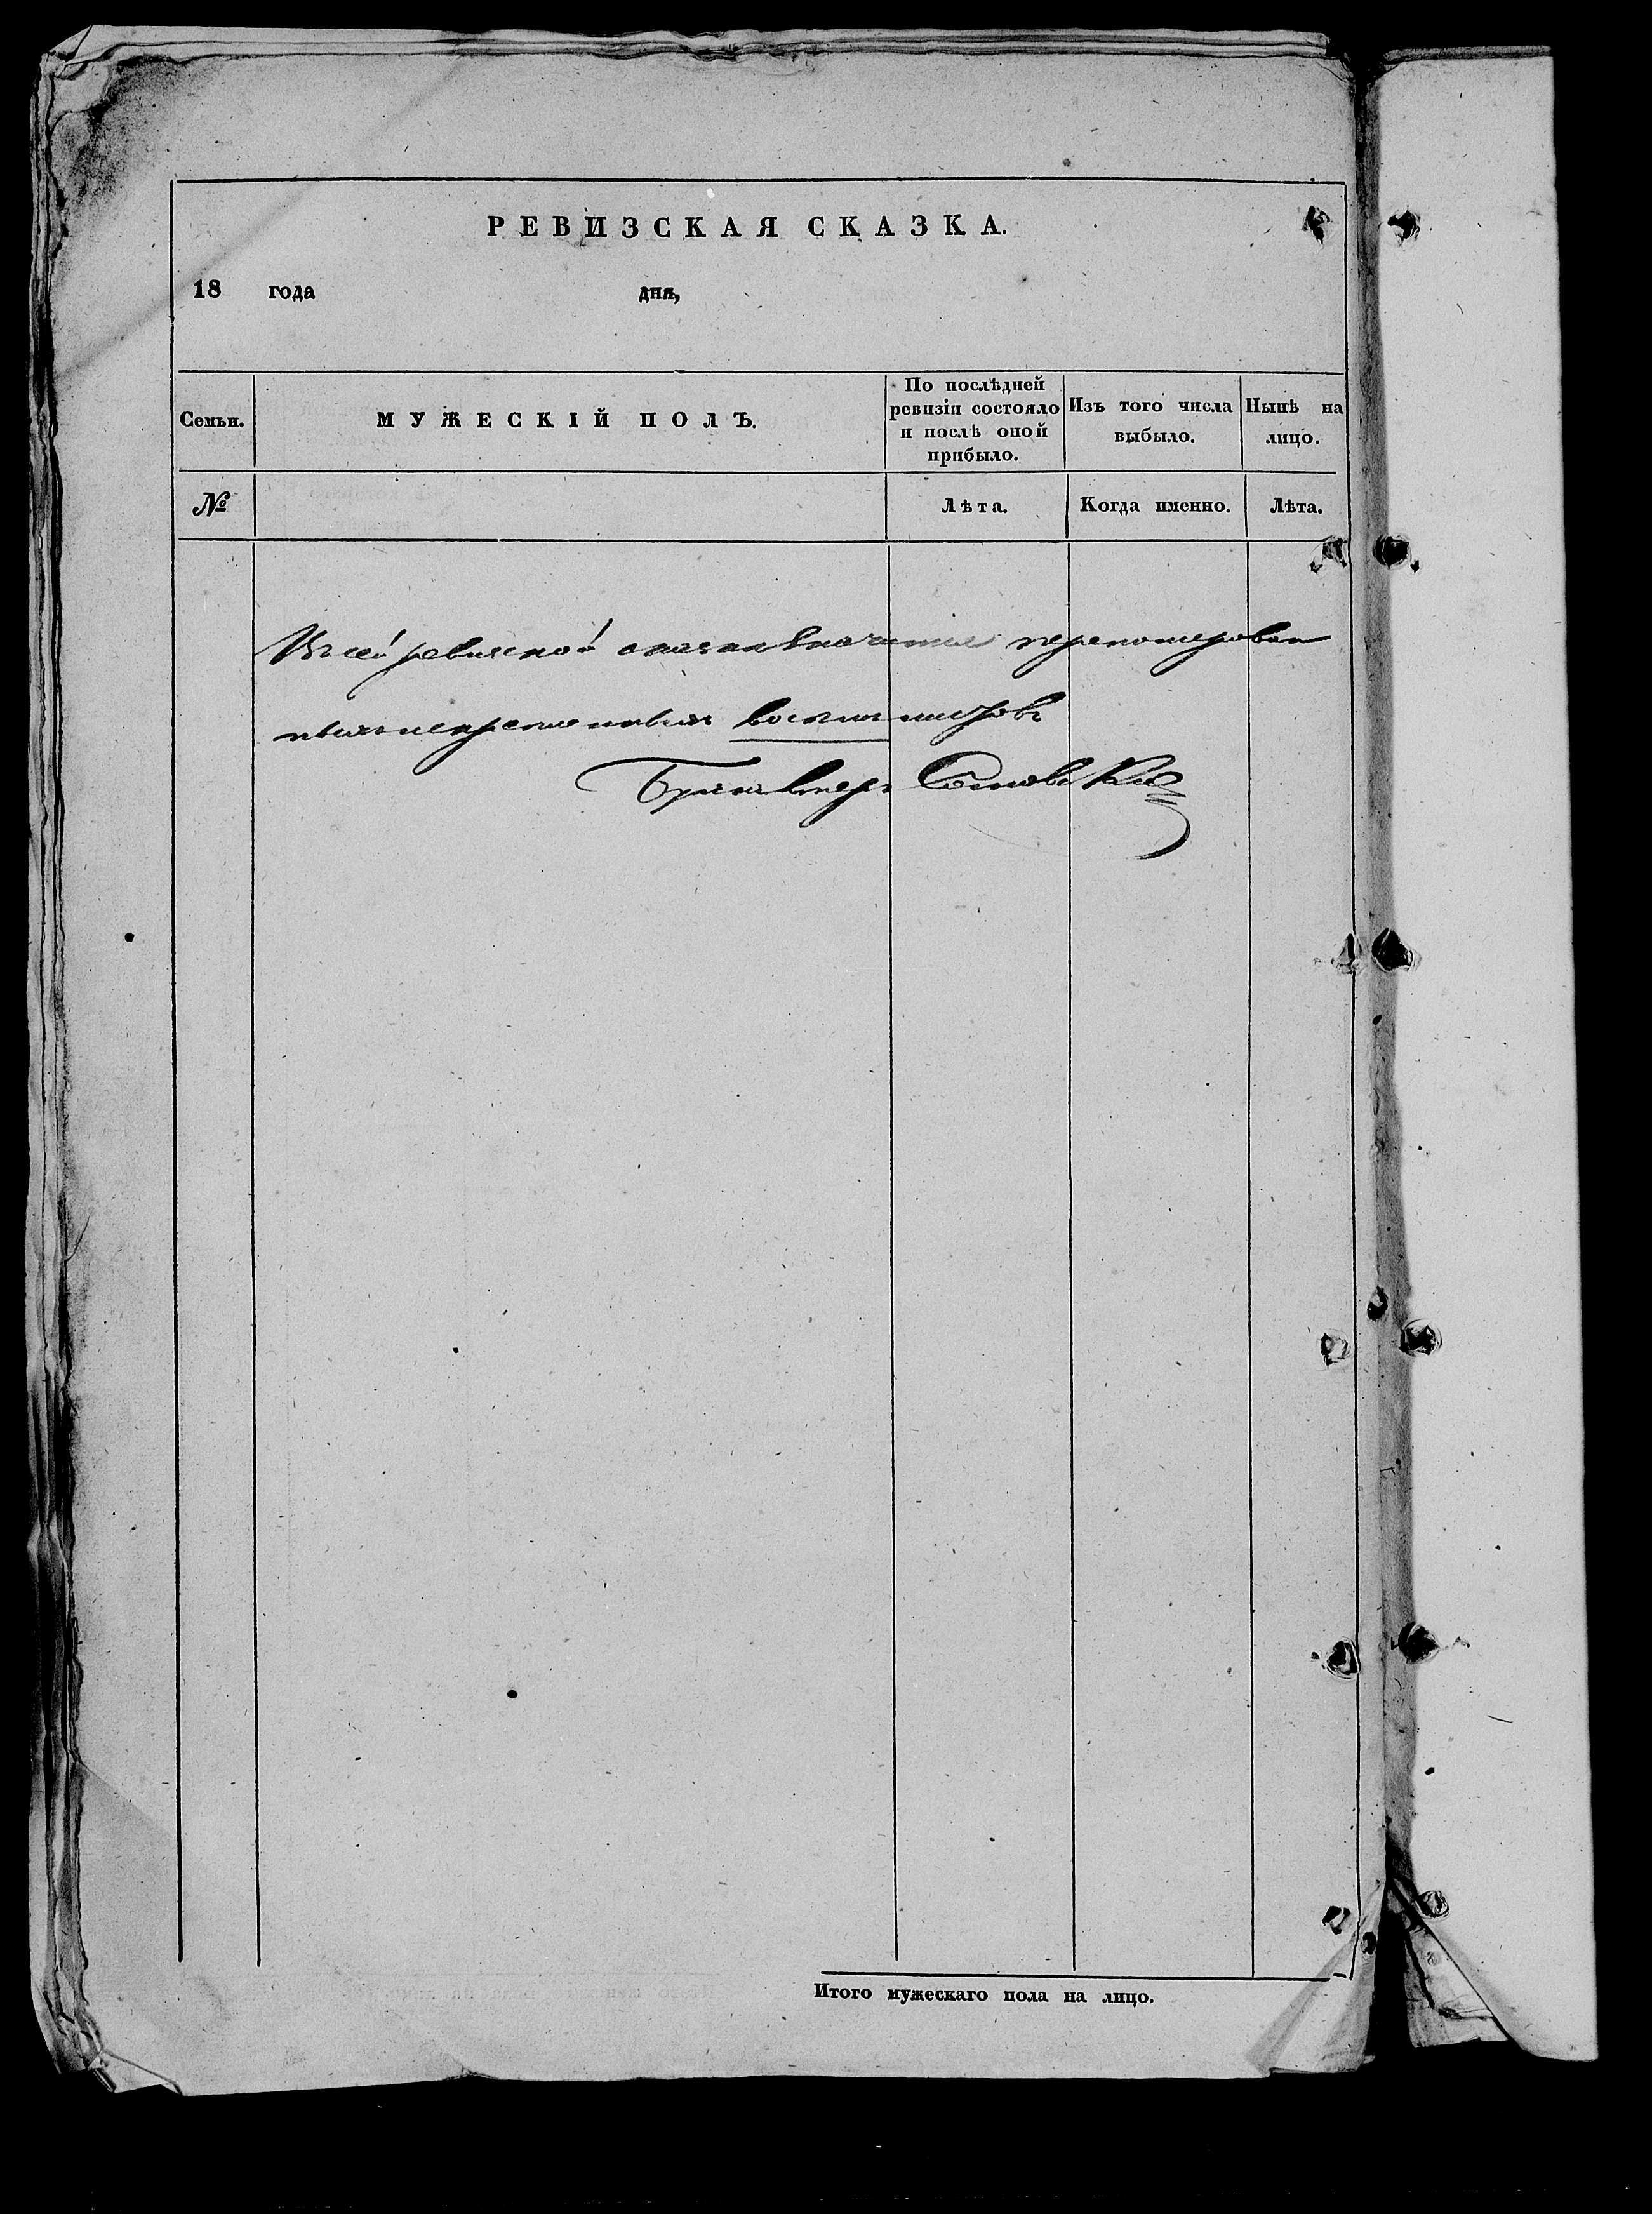 РЕВИЗСКАЯ СКАЗКА.
18 года дня,
Семьи.
МУЖЕСКІЙ ПОЛЪ.
По послѣдней
ревизіи состояло
и послѣ оной
прибыло.
Изъ того числа
выбыло.
Нынѣ на
лицо.
№
Лѣта.
Когда именно.
Лѣта.
В сей ревизской сказки значится
листовъ
Бухгалтеръ
Итого мужескаго пола на лицо.